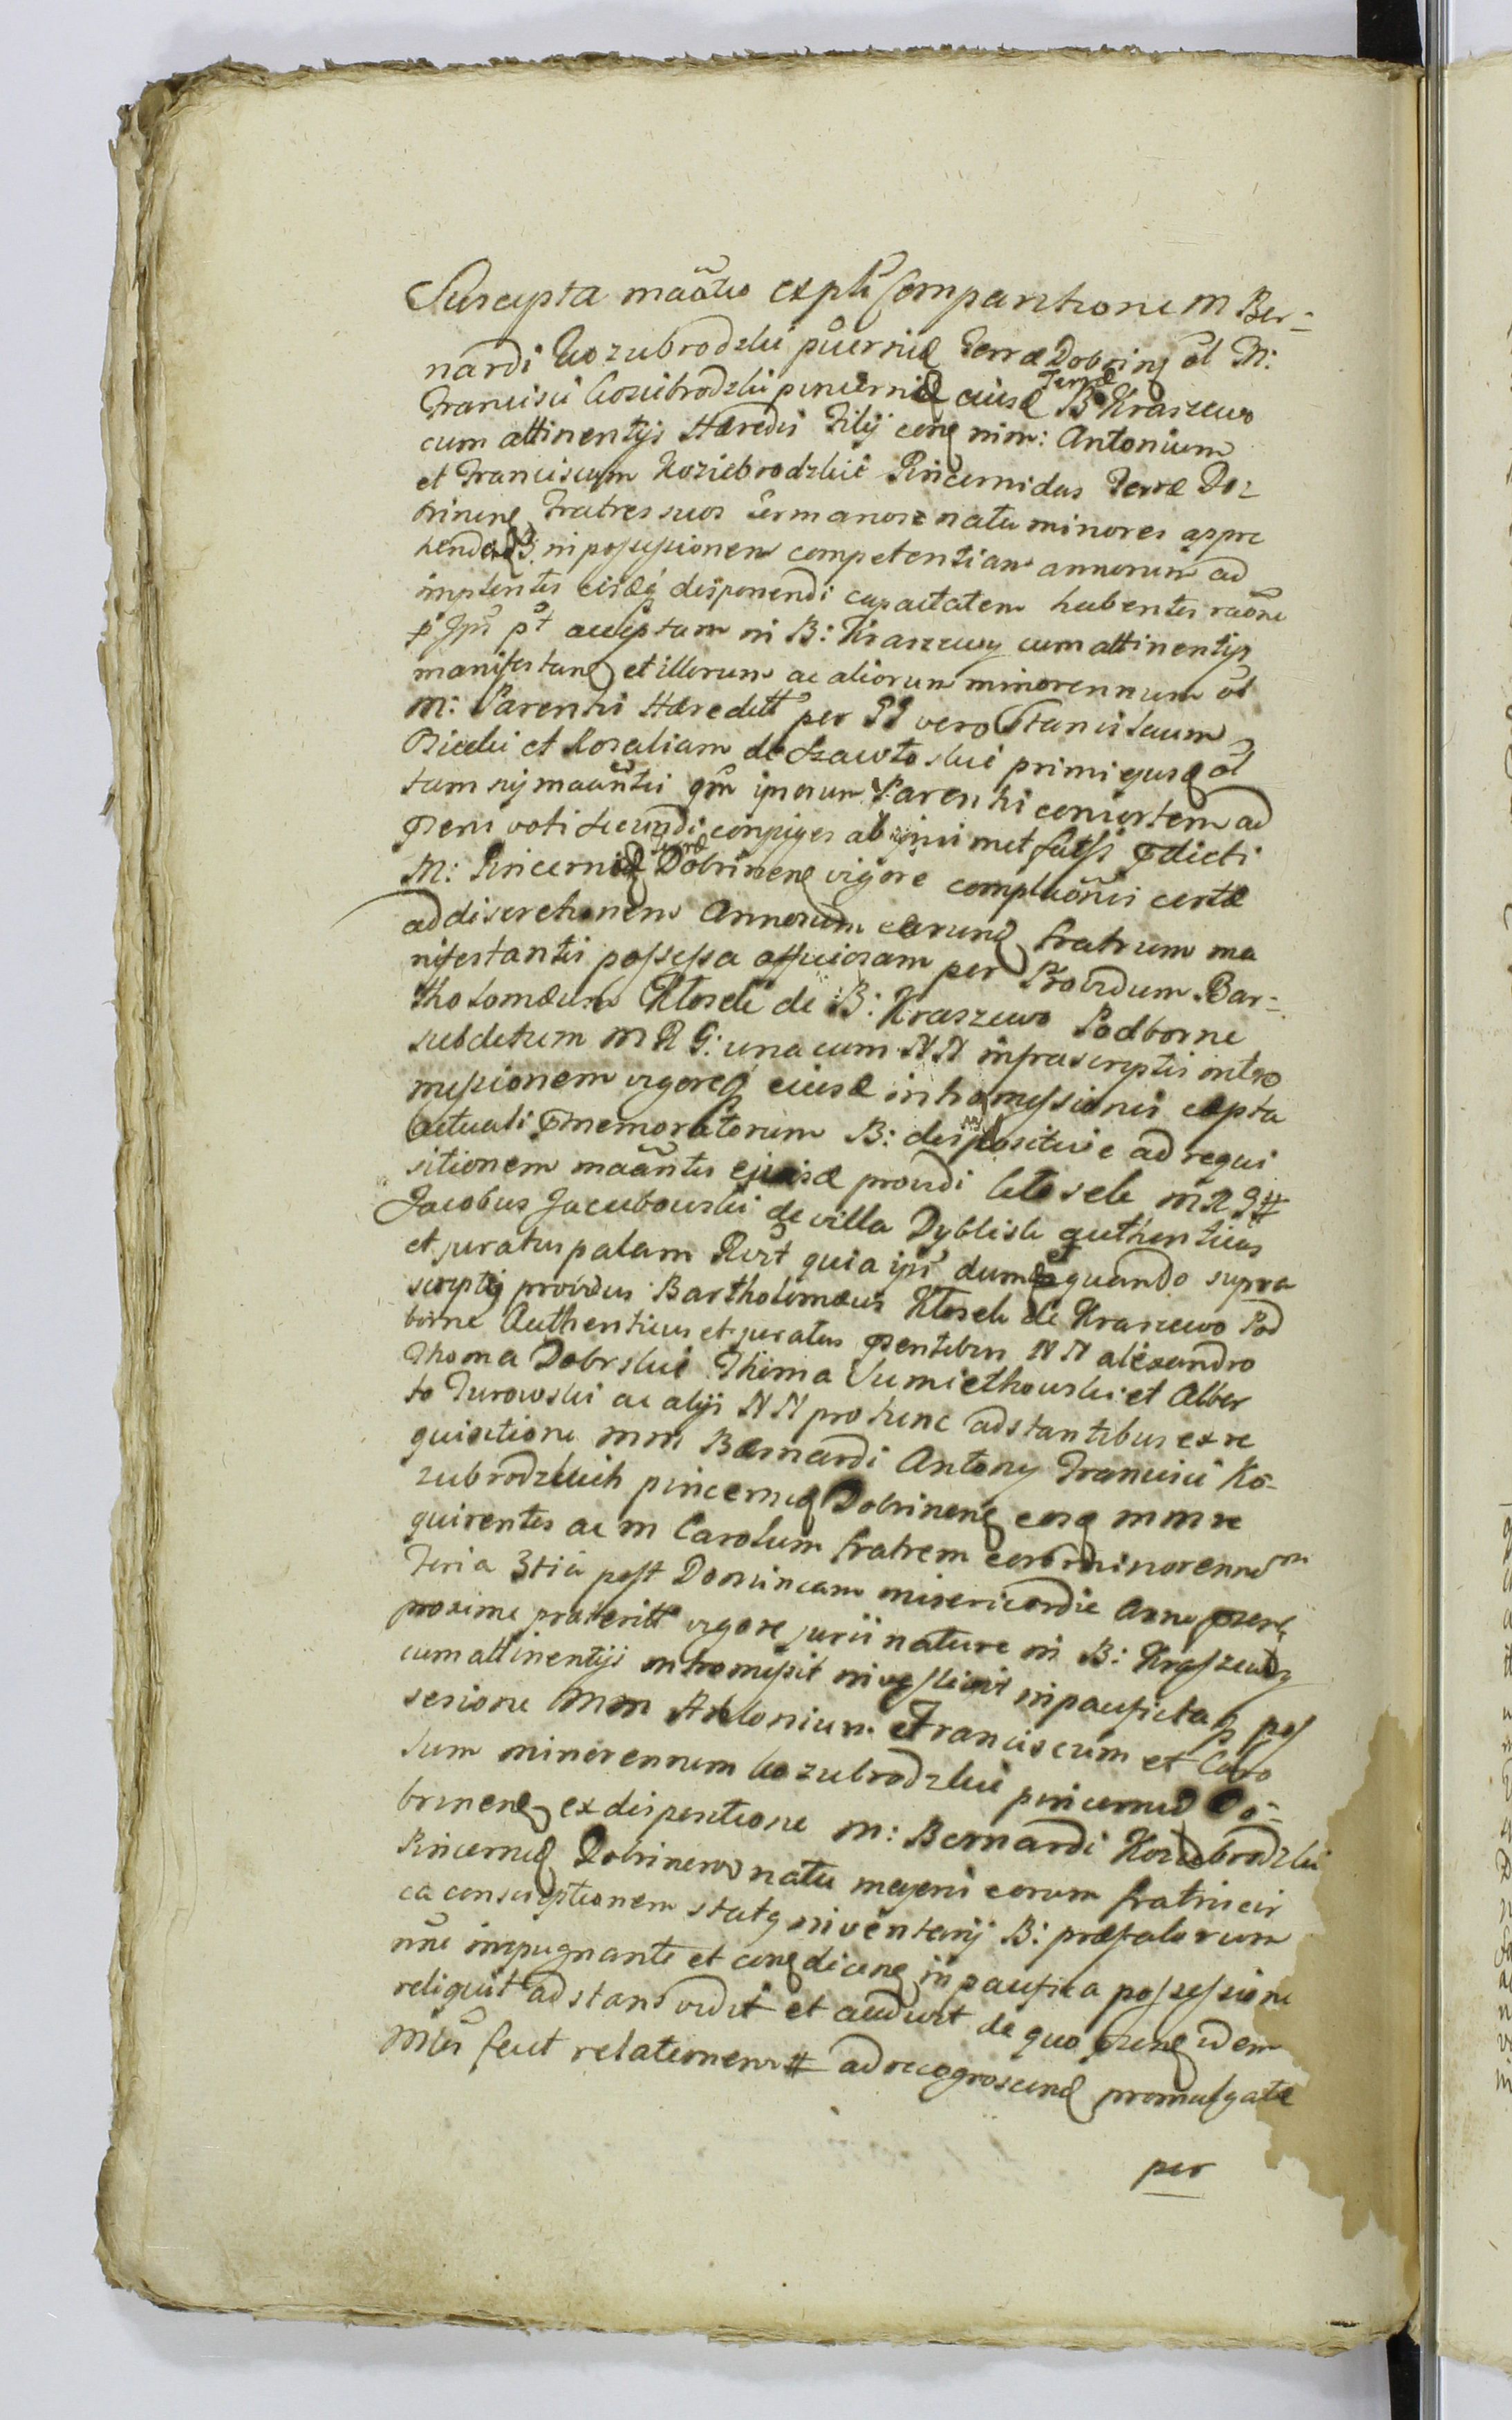 Suscepta maãtio expltˢ Compantionem M Ber-
nardi Kozubrodzki pincernid Terræ Dobrinȩ ol M:
Francisci Koziebrodzki pincernid eiusd Terræ B: Kraszewo
cum attinentijs Hæredis Filij conȩ nim: Antonium
et Franciscum Koziebrodzkie Pincernidas Terræ Doz
brinenȩ Fratres suos Germanos natu minores appre
hendendB: in possessionem competentiam annorum ad
implentes eisdq disponendi capacitatem habentes raõne
acceptam in B: Kraszewo cum attinentijs
manifestanȩ et illorum ac aliorum minorennum ol
M: Parentis Hæreditˢ per GG vero Stanislaum
Bielic et Rosaliam de Szawłoskie primi ejusd ol
tam sij maãntis gm ipsorum Parentis consortem ad
psens voti secundi conjuges ab ipsimet fassi pdicti
M: Pincernid Terræ Dobrinenȩ vigore complãonis certæ
ad discretionem Annorum earund fratrum ma
nifestantis possessa officiosam per Providum Bar-
tholomæum Kłosek de B: Kraszewo Podborne
subditum M R G: una cum NN infrascriptis intro
missionem vigoreq eiusd intromissionis cæpta
actuali pmemoratorum B: dispositive ad requi
sitionem maãntis ejusd providi Kłosek M R G #
Jacobus Jacubowski de villa Dyblisk authenticus
et juratus palam Rext quia ipse dum et quando supra
scriptȩ providus Bartholomæus Kłosek de Kraszewo Pod
borne Authenticus et juratus psentibus NN alexandro
Thoma Dobrskie Thoma Sumiethowski et Alber
to Turowski ac alijs NN pro tunc adstantibus ex re
quisitione MM Bernardi Antony Francisci Ko-
zubrodzkich pincernid Dobrinenȩ eosq MM re
quirentes ac M Carolum fratrem eorum minorennem
Feria 3tia post Dominicam misericordie Anno psenȩ
proxime præteritˢ vigore jurii nature in B: Kraszewo
cum attinentijs intromisit investivit in pacificaq pos
sesione MM Antonium et Franciscum et Caro
lum minorennem Kozubrodzkie pincernid Do-
brinenȩ ex dispositione M: Bernardi Koziebrodzki
Pincernid Dobrinensȩ natu majoris eorum fratris cir
ca conscriptionem statȩ inventarij B: præfatorum
nne impugnante et conȩdicenȩ in pacifica possessione
reliquit adstans vidit et audivit de quo psensȩ idem
Mlis fecit relationem # ad recognoscend promulgatæ
per